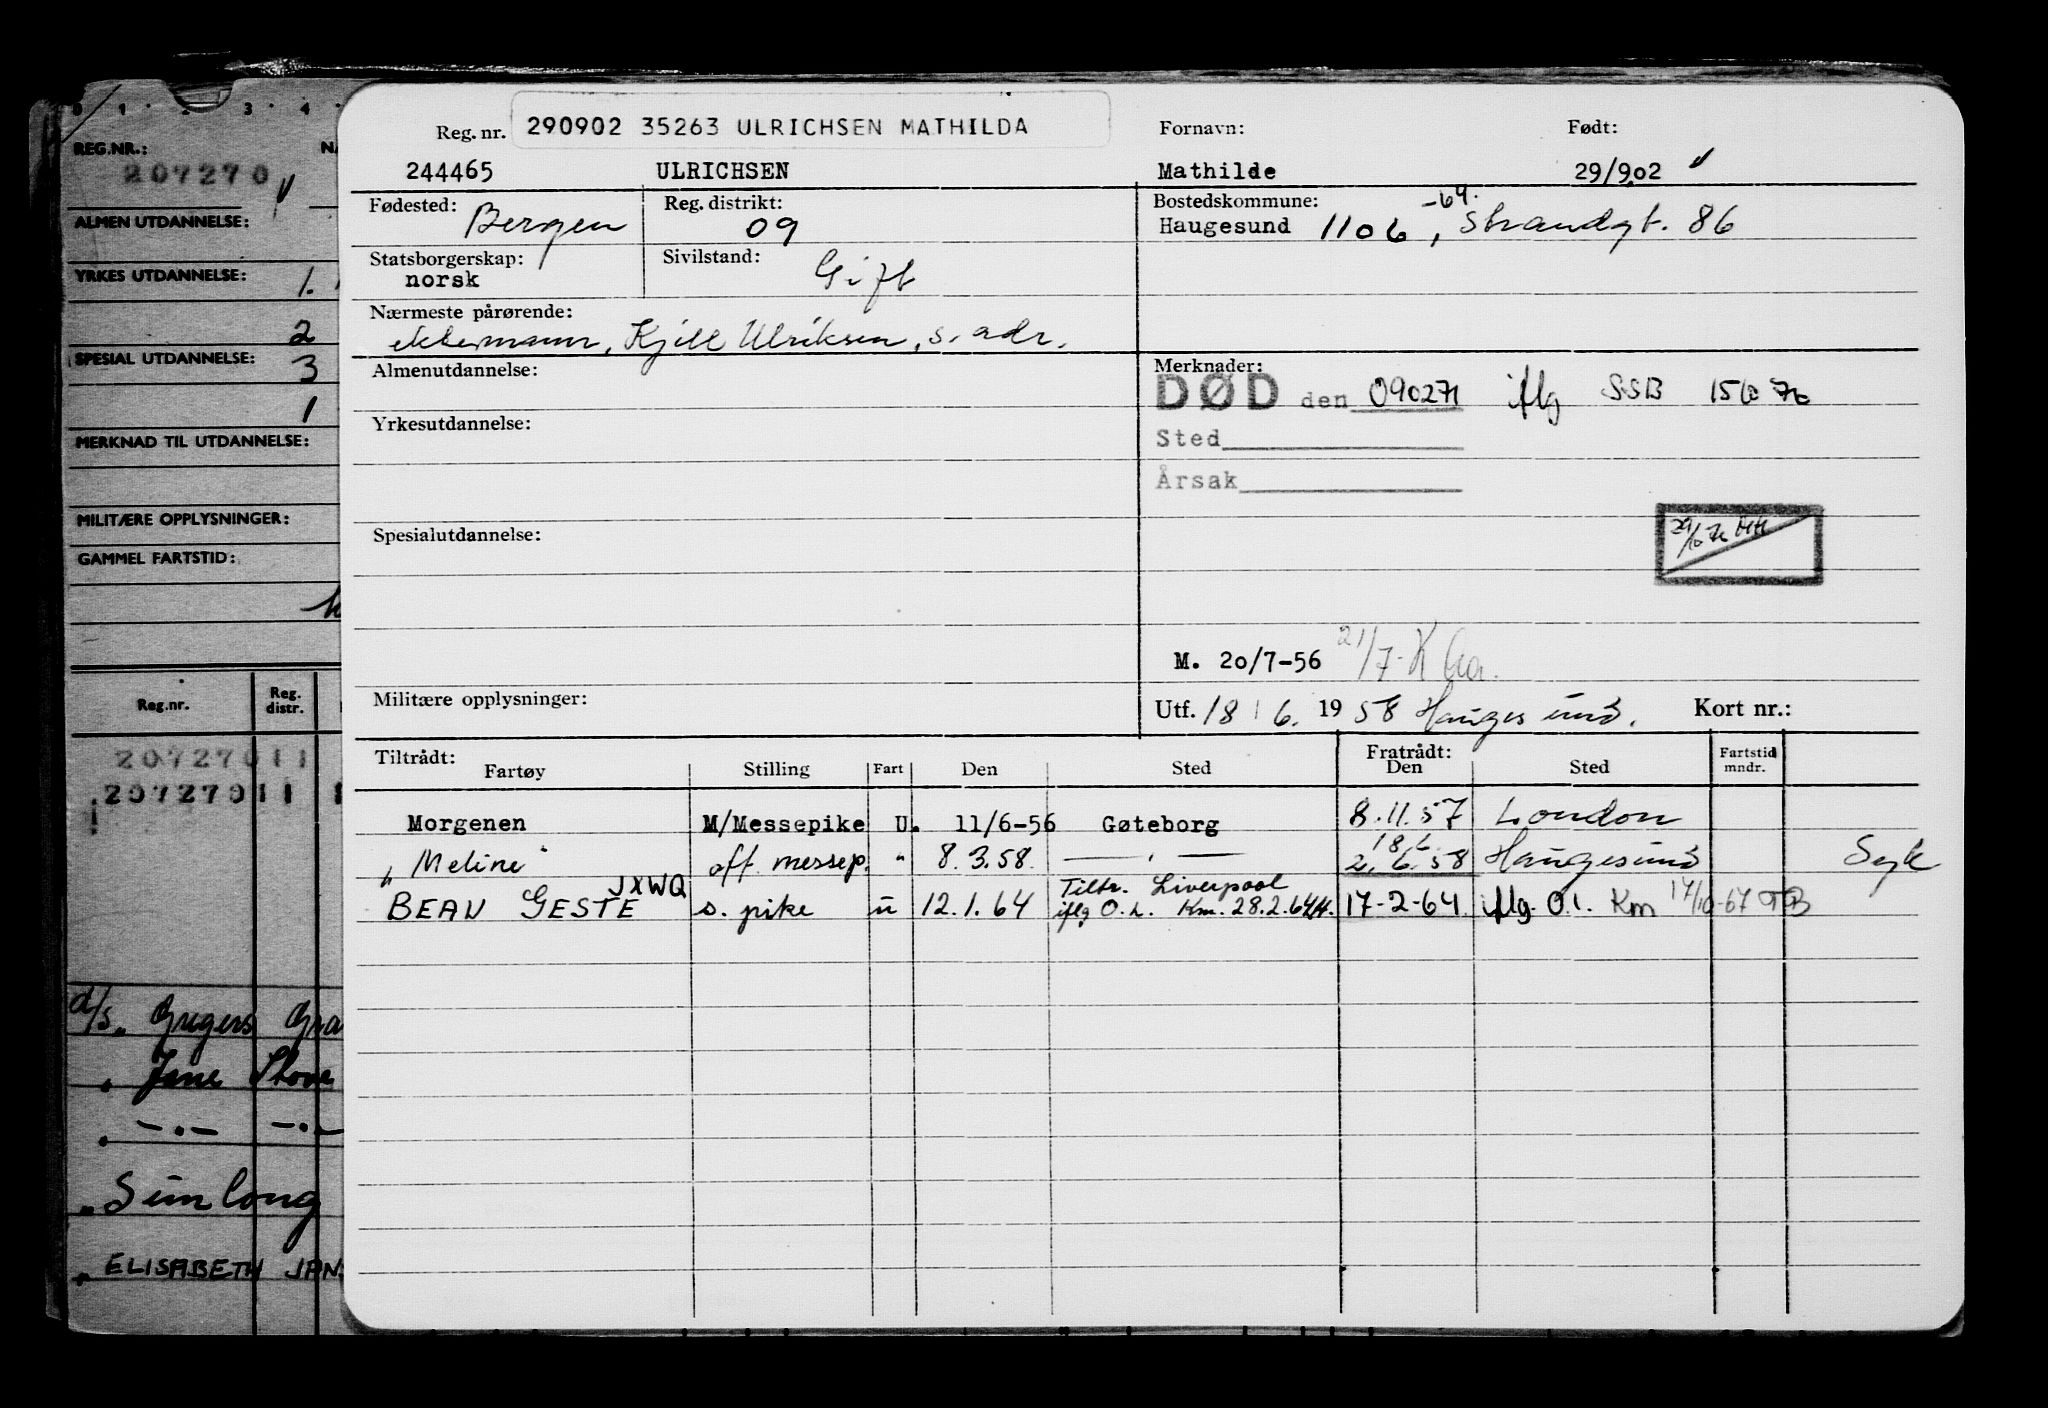 0 1 2 3 4
REG.NR.:
207270
ALMEN UTDANNELSE:
YRKES UTDANNELSE:
1.
2
SPESIAL UTDANNELSE:
3
1
MERKNAD TIL UTDANNELSE:
MILITÆRE OPPLYSNINGER:
GAMMEL FARTSTID:
Reg.nr. Reg. distr.
20727011
20727011
d/s. Gregers Gra
" Jane Stove
" -.- -.-
" Sunlong
" ELISABETH JANS
Reg. nr. 290902 35263 ULRICHSEN MATHILDA Fornavn: Født:
244465 ULRICHSEN Mathilde 29/9.02
Fødested: Bergen Reg. distrikt: 09 Bostedskommune: -64.
Haugesund 1106, Strandgt. 86
Statsborgerskap: norsk Sivilstand: Gift
Nærmeste pårørende:
ektemann, Kjell Ulriksen, s. adr.
Almenutdannelse: Merknader:
DØD den 090271 iflg SSB
Yrkesutdannelse: Sted
Årsak
Spesialutdannelse:
M. 20/7-56 21/7-K
Militære opplysninger: Utf. 18/6. 1958 Haugesund. Kort nr.:
Tiltrådt: Fratrådt: Fartstid mndr.
Fartøy Stilling Fart Den Sted Den Sted
Morgenen M/Messepike U. 11/6-56 Gøteborg 8.11.57 London
" Meline " off. messep. " 8.3.58. 18.6. 2.6.58 Haugesund Syk
BEAU GESTE JXWQ s. pike u 12.1.64 Tiltr. Liverpool iflg O.L. Km. 28.2.64 17-2-64 iflg. O.l. Km 17/10-67